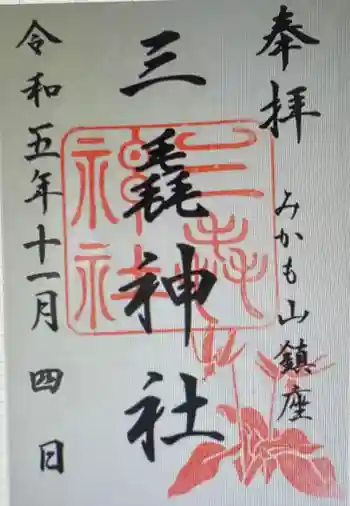 奉拝
みかも山鎮座
三毳神社
令和五年十一月四日
三毳神社